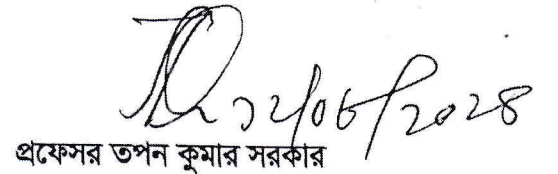 ১২/০৫/২০২৪
প্রফেসর তপন কুমার সরকার